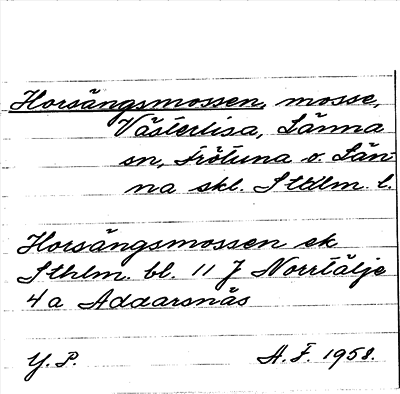 Horsängsmossen, mosse,
Västerlisa, Länna
sn, Frötuna o. Län-
na skl. Sthlm. l.
Horsängsmossen ek
Sthlm. bl. 11 J Norrtälje
4a Addarsnäs
Y. P. A. F. 1958.